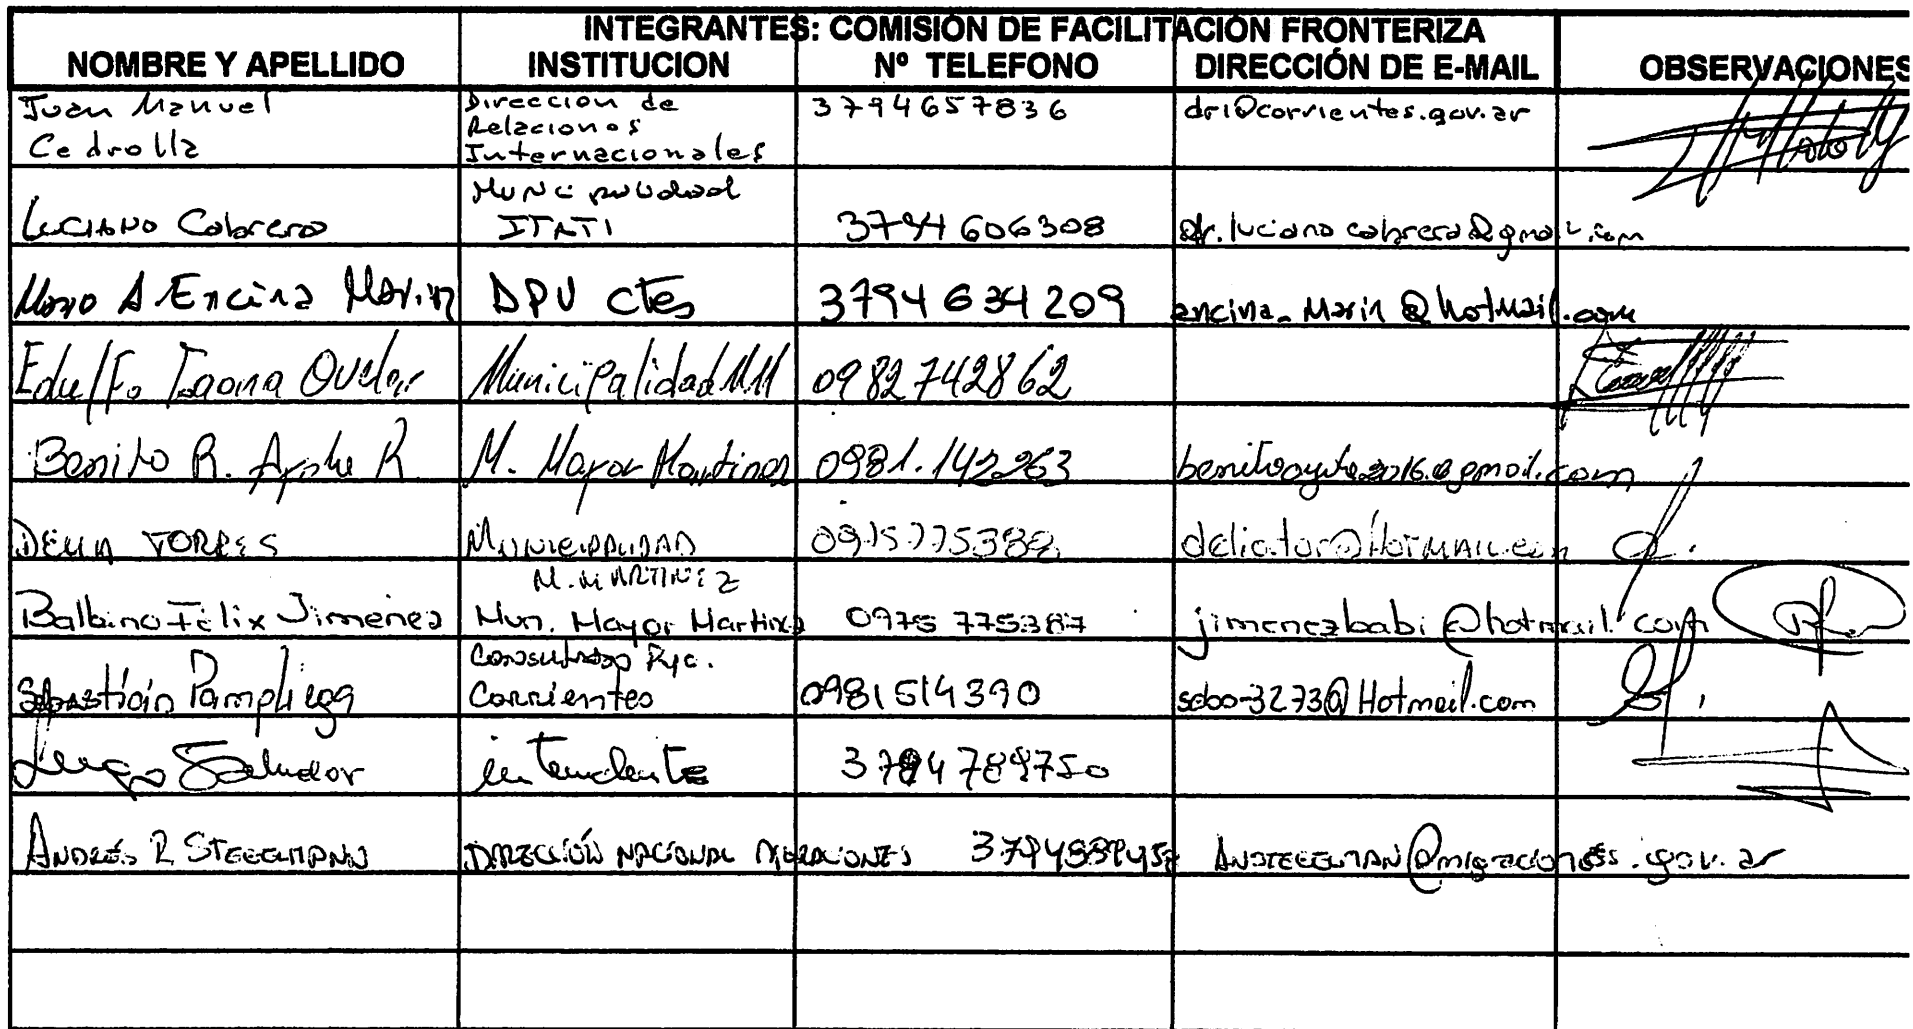 INTEGRANTES: COMISIÓN DE FACILITACIÓN FRONTERIZA
NOMBRE Y APELLIDO INSTITUCION Nº TELEFONO DIRECCIÓN DE E-MAIL OBSERVACIONES
Juan Manuel Cedrolla Dirección de Relaciones Internacionales 3794657836 dri@corrientes.gov.ar
Luciano Cabrera Municipalidad ITATI 3794606308 dr.lucianocabrera@gmail.com
A. Encina Marin DPV ctes 3794634209 encina_marin@hotmail.com
Municipalidad MM 0982742862
Benito R. R. M. Mayor Martinez 0981.142263
DELIA TORRES MUNICIPALIDAD M. MARTINEZ deliator@HOTMAIL.com
Balbino Félix Jimenez Mun. Mayor Martinez 0975 775387 jimenezbabi@hotmail.com
Sebastián Pampliega Consulado Pyo. Corrientes 0981514390 sebo-3273@Hotmail.com
Salvador intendente
ANDRÉS R DIRECCIÓN NACIONAL MIGRACIONES